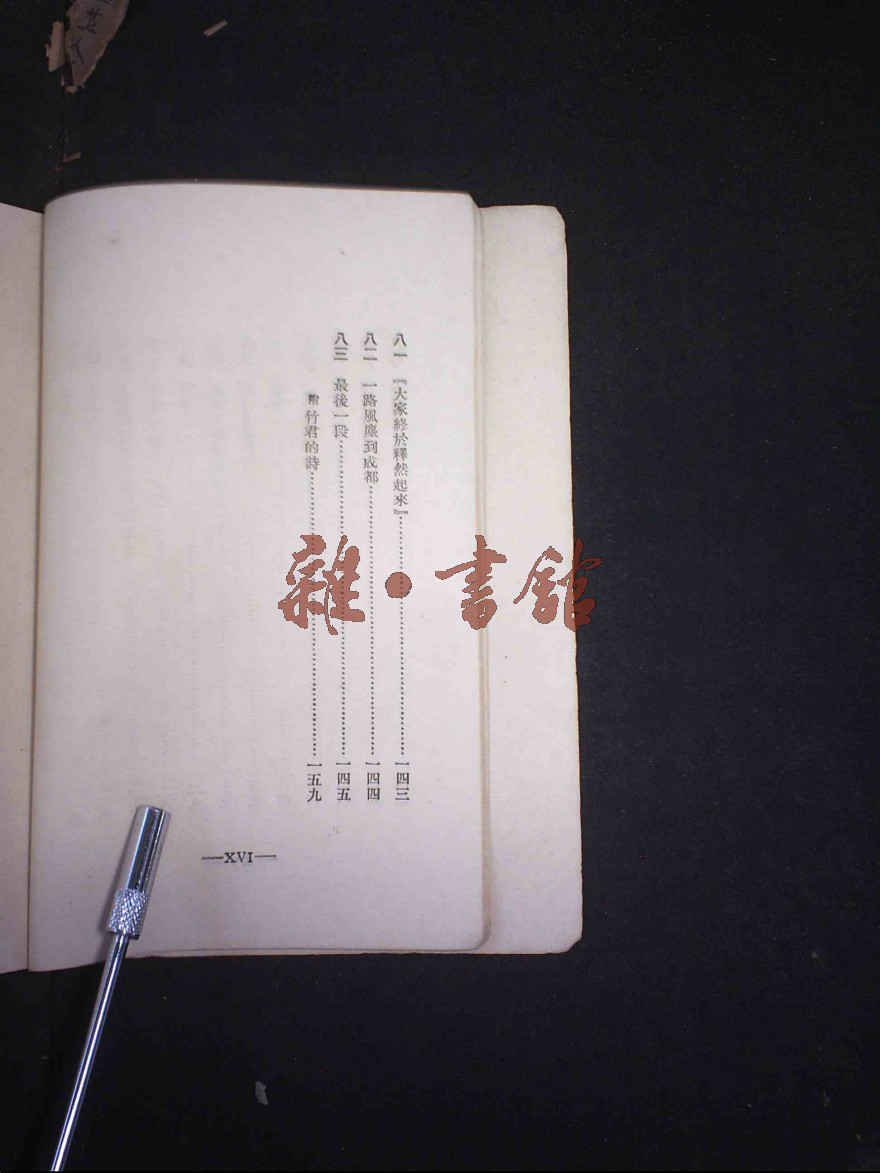 八一 『大家終於釋然起來』⋯⋯⋯⋯⋯⋯⋯⋯一四三
八二 一路風塵到成都⋯⋯⋯⋯⋯⋯⋯⋯一四四
八三 最後一段⋯⋯⋯⋯⋯⋯⋯⋯一四五
附 竹君的詩⋯⋯⋯⋯⋯⋯⋯⋯一五九
—XVI—
雜·書館